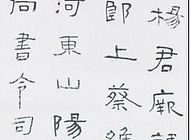 楊君厥
上蔡
河東山陽
尚書令司